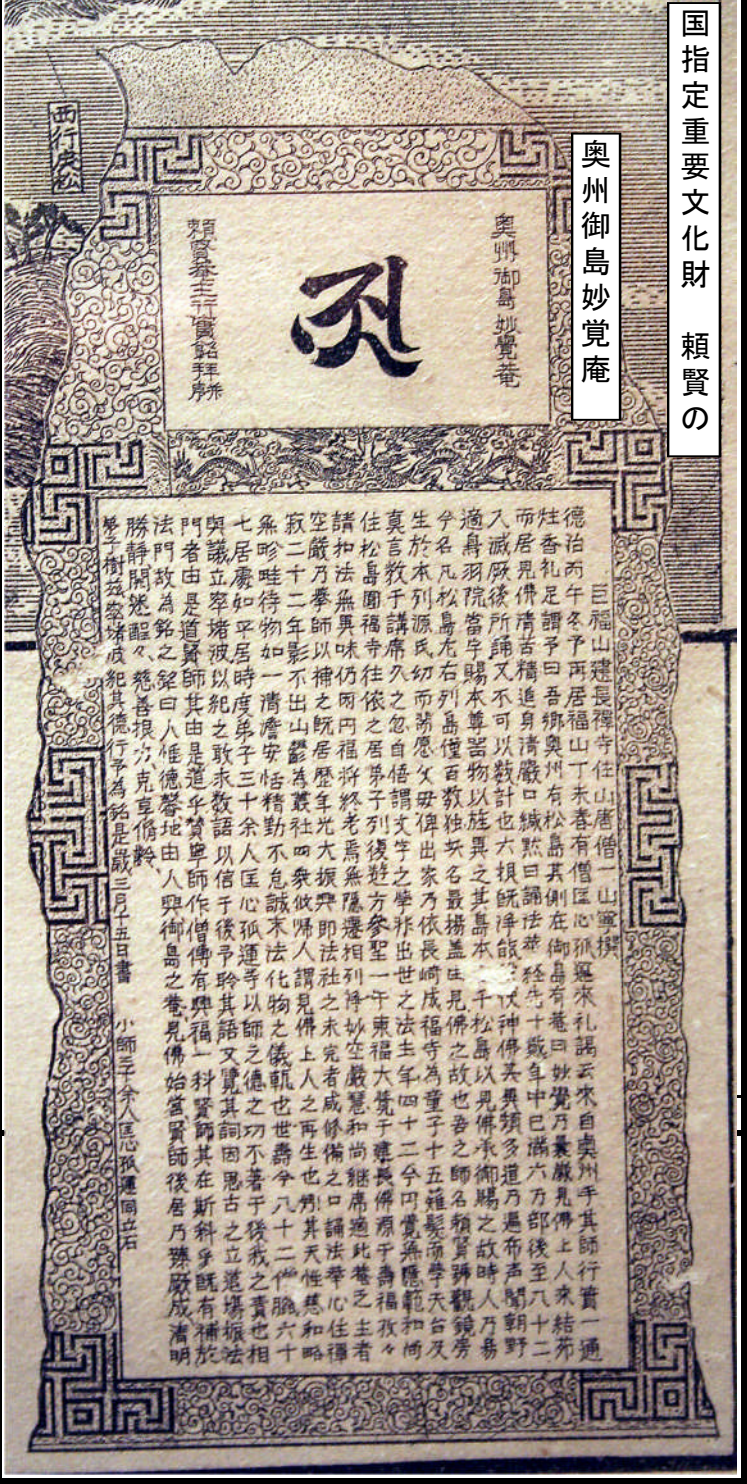 国指定重要文化財　頼賢の
奥州御島妙覚庵
西行戻松
奥州御島妙覺菴
頼賢菴主行實銘并序
巨福山建長禪寺住山唐僧一山寧撰
德治丙午冬予再居福山丁未春有僧匡心孤運來礼謁云來自奥州手其師行實一通
炷香礼足謂予曰吾郷奥州有松島其側在御島有菴曰妙覺乃曩嚴見佛上人來結茆
而居見佛清苦精進身清嚴口緘黙日誦法華経先十数年中已滿六万部後至八十二
入滅厥後所誦又不可以数計也六根既淨能伏神佛其異類多道乃遍布声聞朝野
適鳥羽院當宇賜本尊器物以旌異之其島本千松島以見佛承御賜之故時人乃易
今名凡松島左右列島僅百数独妙名最揚盖由見佛之故也吾之師名頼賢號觀鏡房
生於本列源氏幼而愿父母俾出家乃依長崎成福寺為童子十五薙髪而學天台及
真言教于講席久之忽自悟謂文字之學非出世之法士年四十二今円覺無隱範和尚
住松島圓福寺往依之居弟子列復遊方参聖一于東福大覺于建長佛源于壽福孜々
請扣法無異味仍図円福将終老焉無隱遷相列淨妙空嚴慧和尚継席適此菴乏主者
空嚴乃擧師以補之既居歴年光大振興即法社之未完者咸修備之口誦法華心住禪
寂二十二年影不出山欝為叢社四衆攸帰人謂見佛上人之再生也矧其天性慈和略
無畛畦待物如一清澹安恬精勤不怠誠末法化物之儀軌也世壽今八十二僧臘六十
七居處如平居時度弟子三十余人匡心孤運等以師之德之功不著于後我之責也相
與議立窣堵波以紀之敢求数語以信于後予聆其語又覽其詞因思古之立道場振法
門者由是道賢師其由是道乎賛寧師作僧傳有興福一科賢師其在斯科乎既有補於
法門故為銘之銘曰人惟德馨地由人興御島之菴見佛始営賢師後居乃臻厥成清明
勝靜開迷醒々慈善根力克享脩齡
弟子樹茲窣堵波紀其德行予為銘是歳三月十五日書　小師三十余人匡心孤運同立石